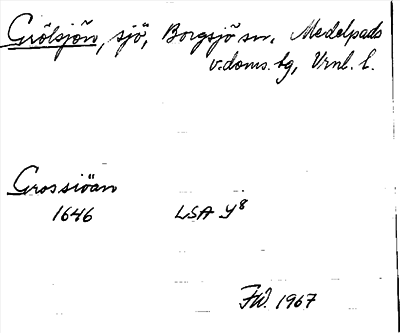 Grölsjön, sjö, Borgsjö sn, Medelpads
v. doms. tg, Vrnl. l.
Grossiöan
1646 LSA Y8
FW. 1967